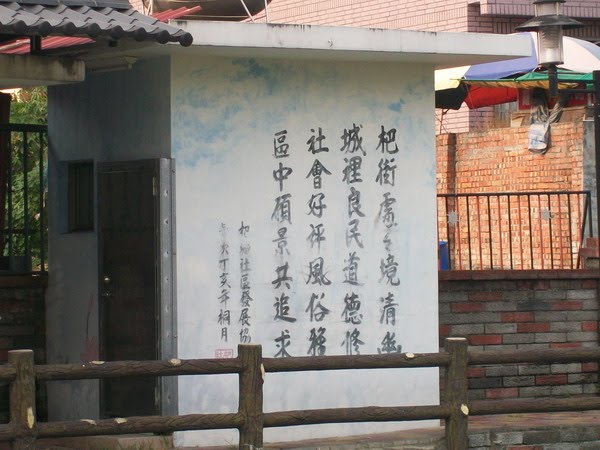 杷街處々境清幽
城裡良民道德修
社會好評風俗雅
區中願景共追求
杷城社區發展協
歲次丁亥年桐月